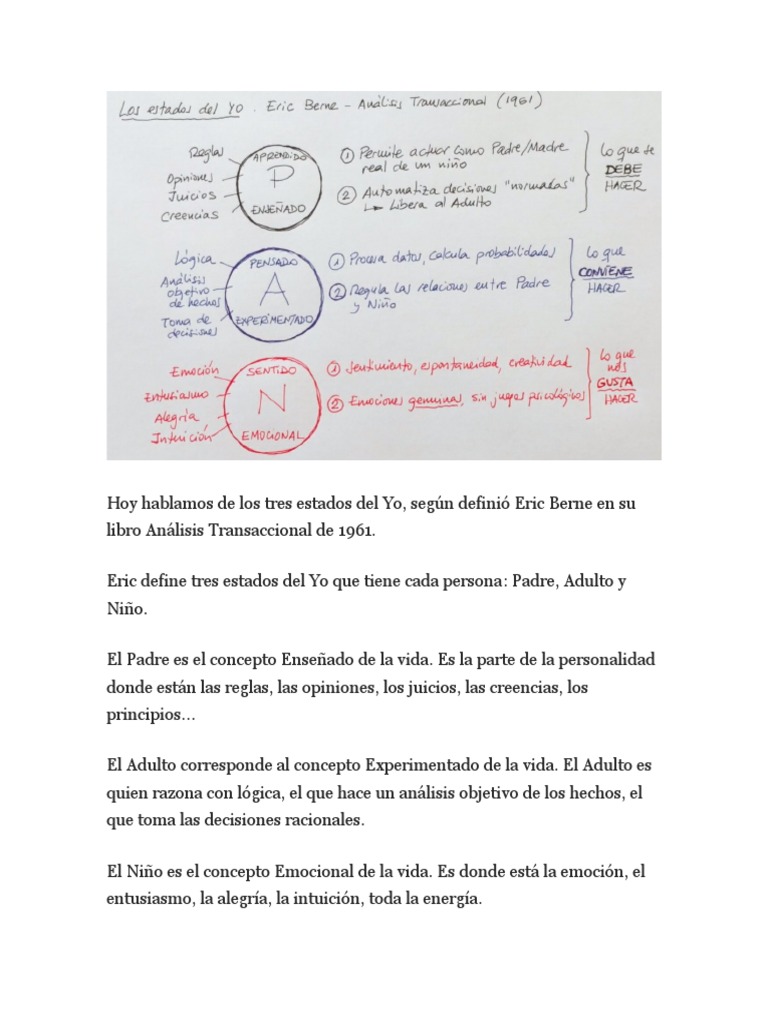 Los estados del YO. Eric Berne - Análisis Transaccional (1961)
Reglas
Opiniones
Juicios
Creencias
APRENDIDO
P
ENSEÑADO
① Permite actuar como Padre/Madre
real de un niño
② Automatiza decisiones "normadas"
↳ Libera al Adulto
lo que se
DEBE
HACER
Lógica
Análisis
objetivo
de hechos
Toma de
decisiones
PENSADO
A
EXPERIMENTADO
① Procesa datos, calcula probabilidades
② Regula las relaciones entre Padre
y Niño
lo que
CONVIENE
HACER
Emoción
Entusiasmo
Alegría
Intuición
SENTIDO
N
EMOCIONAL
① Sentimiento, espontaneidad, creatividad
② Emociones genuinas, sin juegos psicológicos
lo que
nos
GUSTA
HACER
Hoy hablamos de los tres estados del Yo, según definió Eric Berne en su
libro Análisis Transaccional de 1961.
Eric define tres estados del Yo que tiene cada persona: Padre, Adulto y
Niño.
El Padre es el concepto Enseñado de la vida. Es la parte de la personalidad
donde están las reglas, las opiniones, los juicios, las creencias, los
principios…
El Adulto corresponde al concepto Experimentado de la vida. El Adulto es
quien razona con lógica, el que hace un análisis objetivo de los hechos, el
que toma las decisiones racionales.
El Niño es el concepto Emocional de la vida. Es donde está la emoción, el
entusiasmo, la alegría, la intuición, toda la energía.